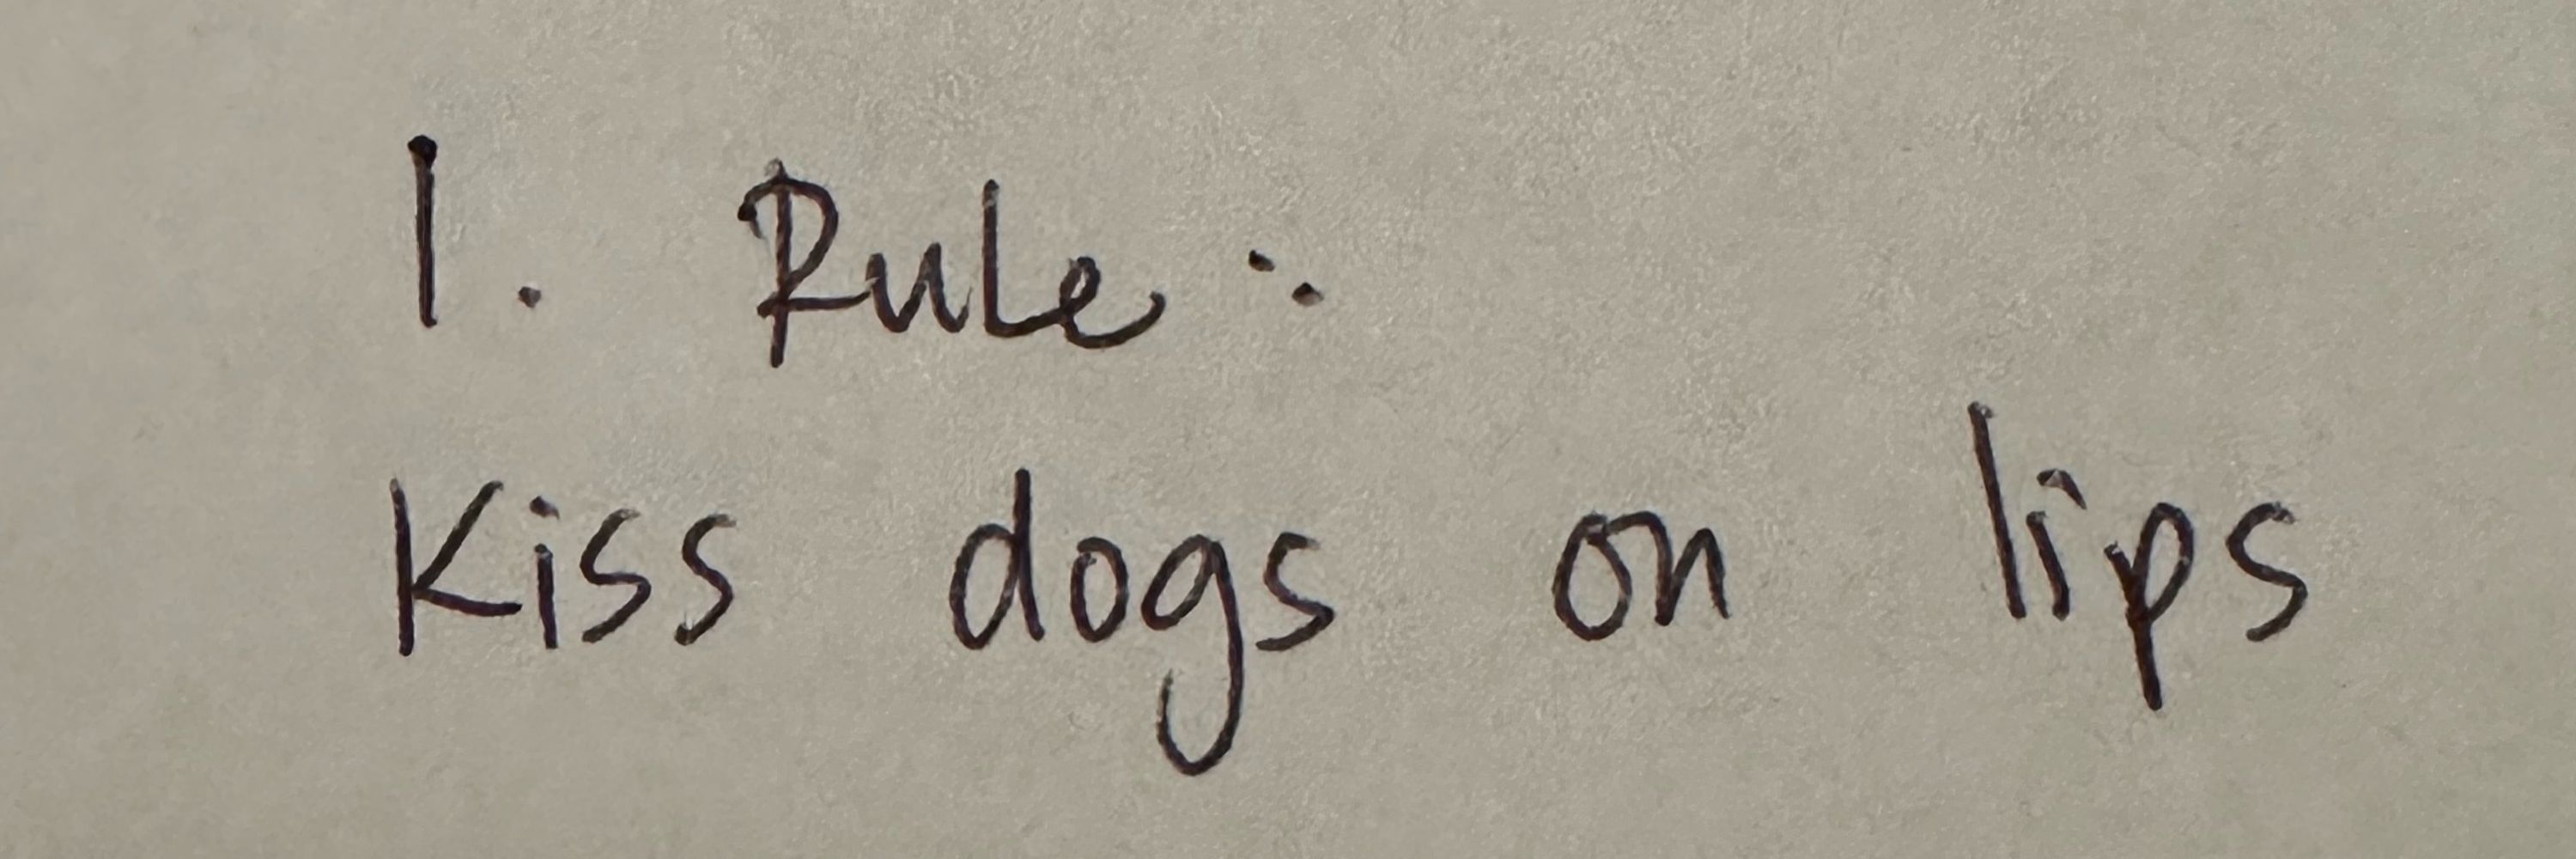 1. Rule:
Kiss dogs on lips